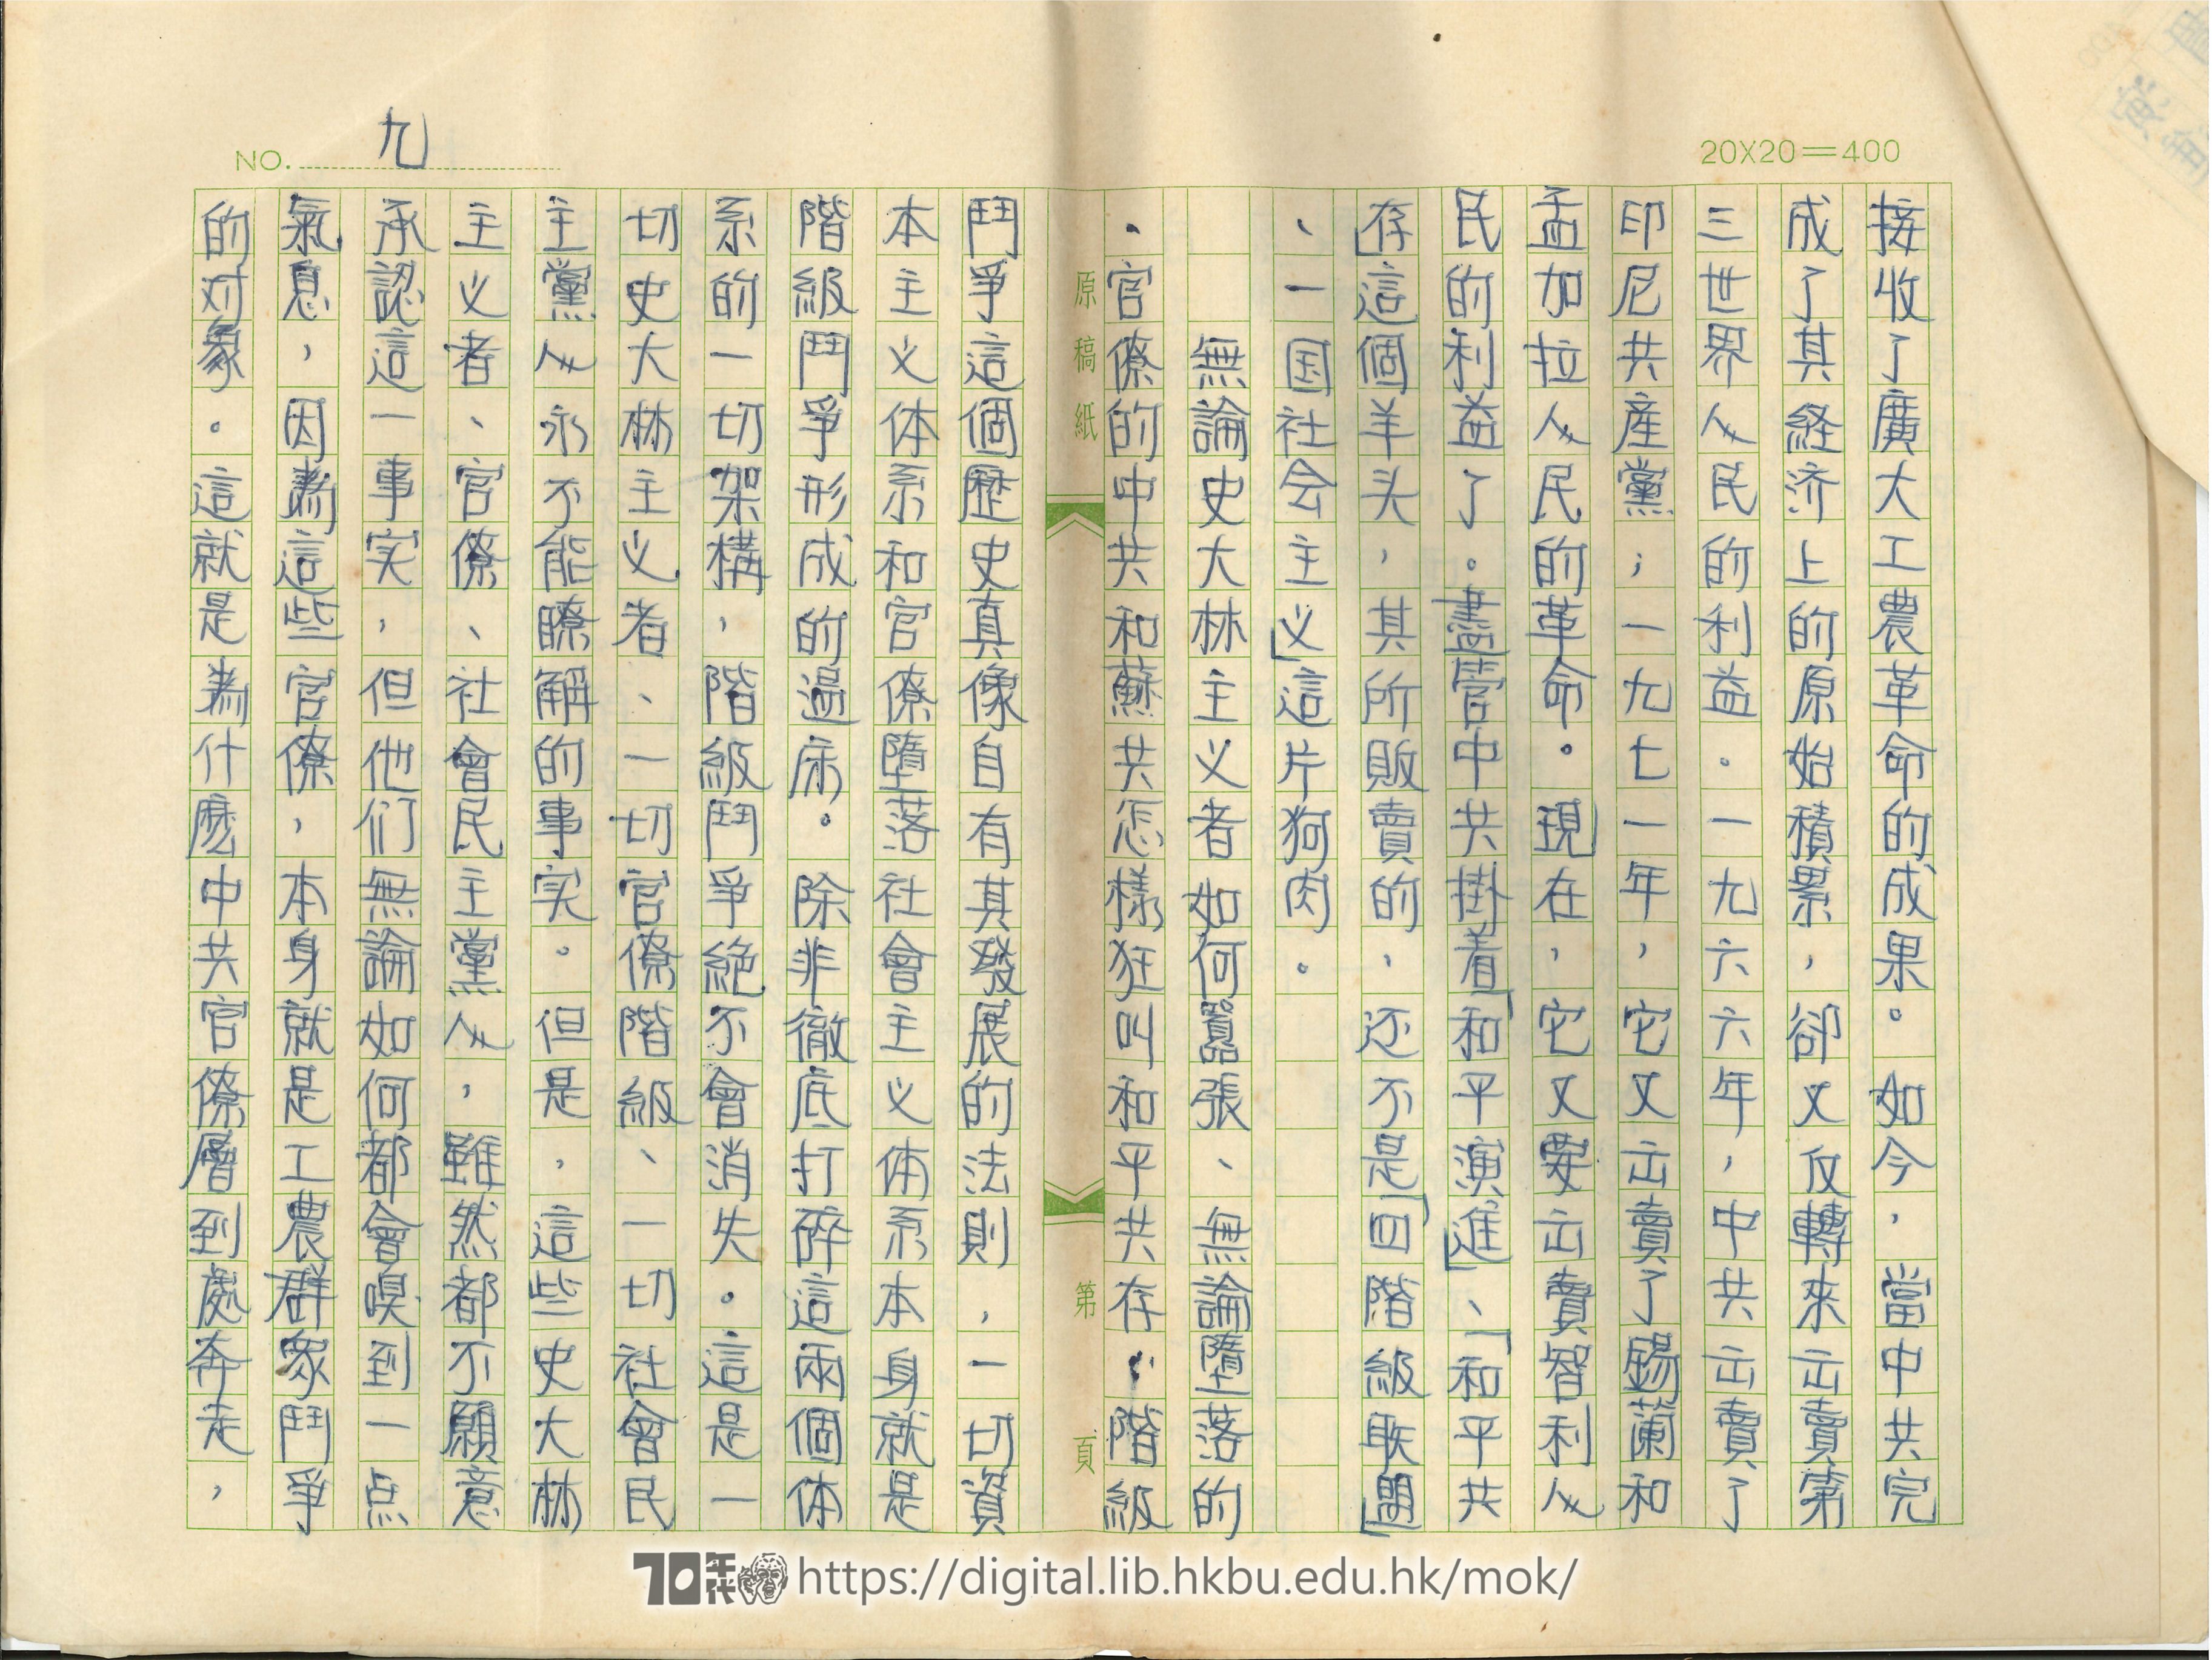 20X20=400
NO. 九
接收了廣大工農革命的成果。如今,當中共完
成了其経济上的原始積累,卻又反轉來出賣第
三世界人民的利益。一九六六年,中共出賣了
印尼共産黨;一九七一年,它又出賣了錫蘭和
孟加拉人民的革命。現在,它又要出賣智利人
民的利益了。盡管中共掛着「和平演進」、「和平共
存」這個羊头,其所販賣的,还不是「四階級联盟」
、「一国社会主义」這片狗肉。
無論史大林主义者如何囂張、無論墮落的
・官僚的中共和蘇共怎樣狂叫和平共存:階級
原稿紙 第 頁
鬥爭這個歷史真像自有其發展的法則,一切資
本主义体系和官僚墮落社會主义体系本身就是
階級鬥爭形成的過床。除非徹底打碎這兩個体
系的一切架構,階級鬥爭絕不會消失。這是一
切史大林主义者、一切官僚階級、一切社會民
主黨人永不能瞭解的事实。但是,這些史大林
主义者、官僚、社會民主黨人,雖然都不願意
承認這一事实,但他们無論如何都會嗅到一点
氣息,因為這些官僚,本身就是工農群眾鬥爭
的对象。這就是為什麽中共官僚層到處奔走,
70年代 https://digital.lib.hkbu.edu.hk/mok/